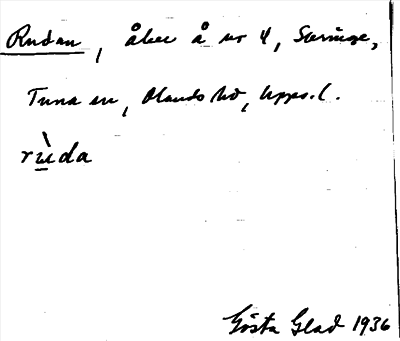 Rudan, åker å nr 4, Særinge,
Tuna sn, Olands hd, Upps.l.
rùda
Gösta Glad 1936